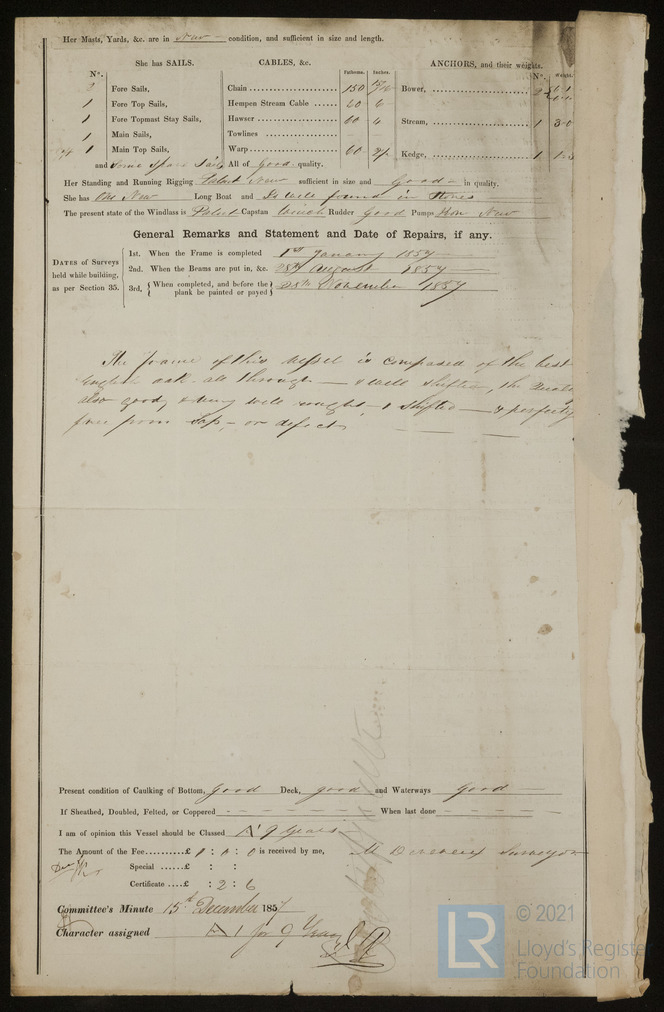 Her Masts, Yards, &c. are in New condition, and sufficient in size and length.
She has SAILS.
CABLES, &c.
ANCHORS, and their weights.
No.
Fathoms.
Inches.
No.
Weight.
2 Fore Sails,
Chain 150
Bower, 2
1 Fore Top Sails,
Hempen Stream Cable 60 6
1 Fore Topmast Stay Sails,
Hawser 60 4
Stream, 1 3-0
1 Main Sails,
Towlines — —
1 Main Top Sails,
Warp 60
Kedge, 1
and Some Spare Sails All of Good quality.
Her Standing and Running Rigging New sufficient in size and Good in quality.
She has One New Long Boat and Is well found in Stores
The present state of the Windlass is Patent Capstan Winch Rudder Good Pumps Iron New
General Remarks and Statement and Date of Repairs, if any.
DATES of Surveys held while building, as per Section 35.
1st. When the Frame is completed 1st January 1857
2nd. When the Beams are put in, &c. 28th August 1857
3rd. { When completed, and before the plank be painted or payed } 25th November 1857
The frame of this Vessel is composed of the best
English oak all through & well shifted, the
also good, & being well & shifted & perfectly
free from Sap, or defects
Present condition of Caulking of Bottom, Good Deck, good and Waterways Good
If Sheathed, Doubled, Felted, or Coppered When last done
I am of opinion this Vessel should be Classed A 1 9 Years
The Amount of the Fee £ : 0 : 0 is received by me,
M Devereux Surveyor
Special £ : :
Certificate £ : 2 : 6
Committee's Minute 15th December 1857
Character assigned A 1 for 9 Years
LR
© 2021
Lloyd's Register
Foundation